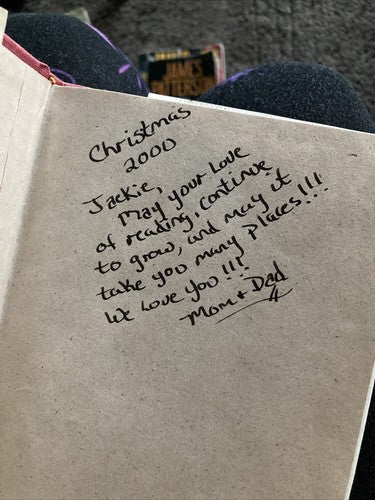 JAMES
PATTERSON
Christmas
2000
Jackie,
May your Love
of reading, continue
to grow, and may it
take you many places!!!
We Love You!!!
Mom + Dad